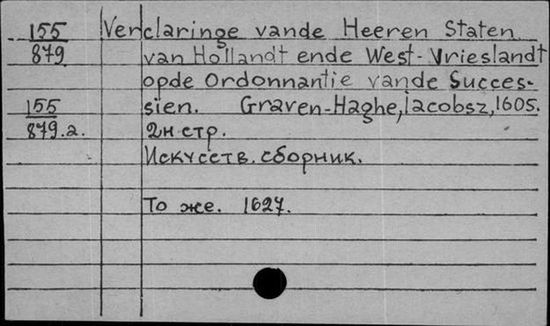 155 Verclaringe vande Heeren Staten
879 van Hollandt ende West-Vrieslandt
opde Ordonnantie vande Succes-
155 sien. Graven-Haghe, Iacobsz, 1605.
879.a. 2н стр.
Искусств. сборник.
То же. 1627.